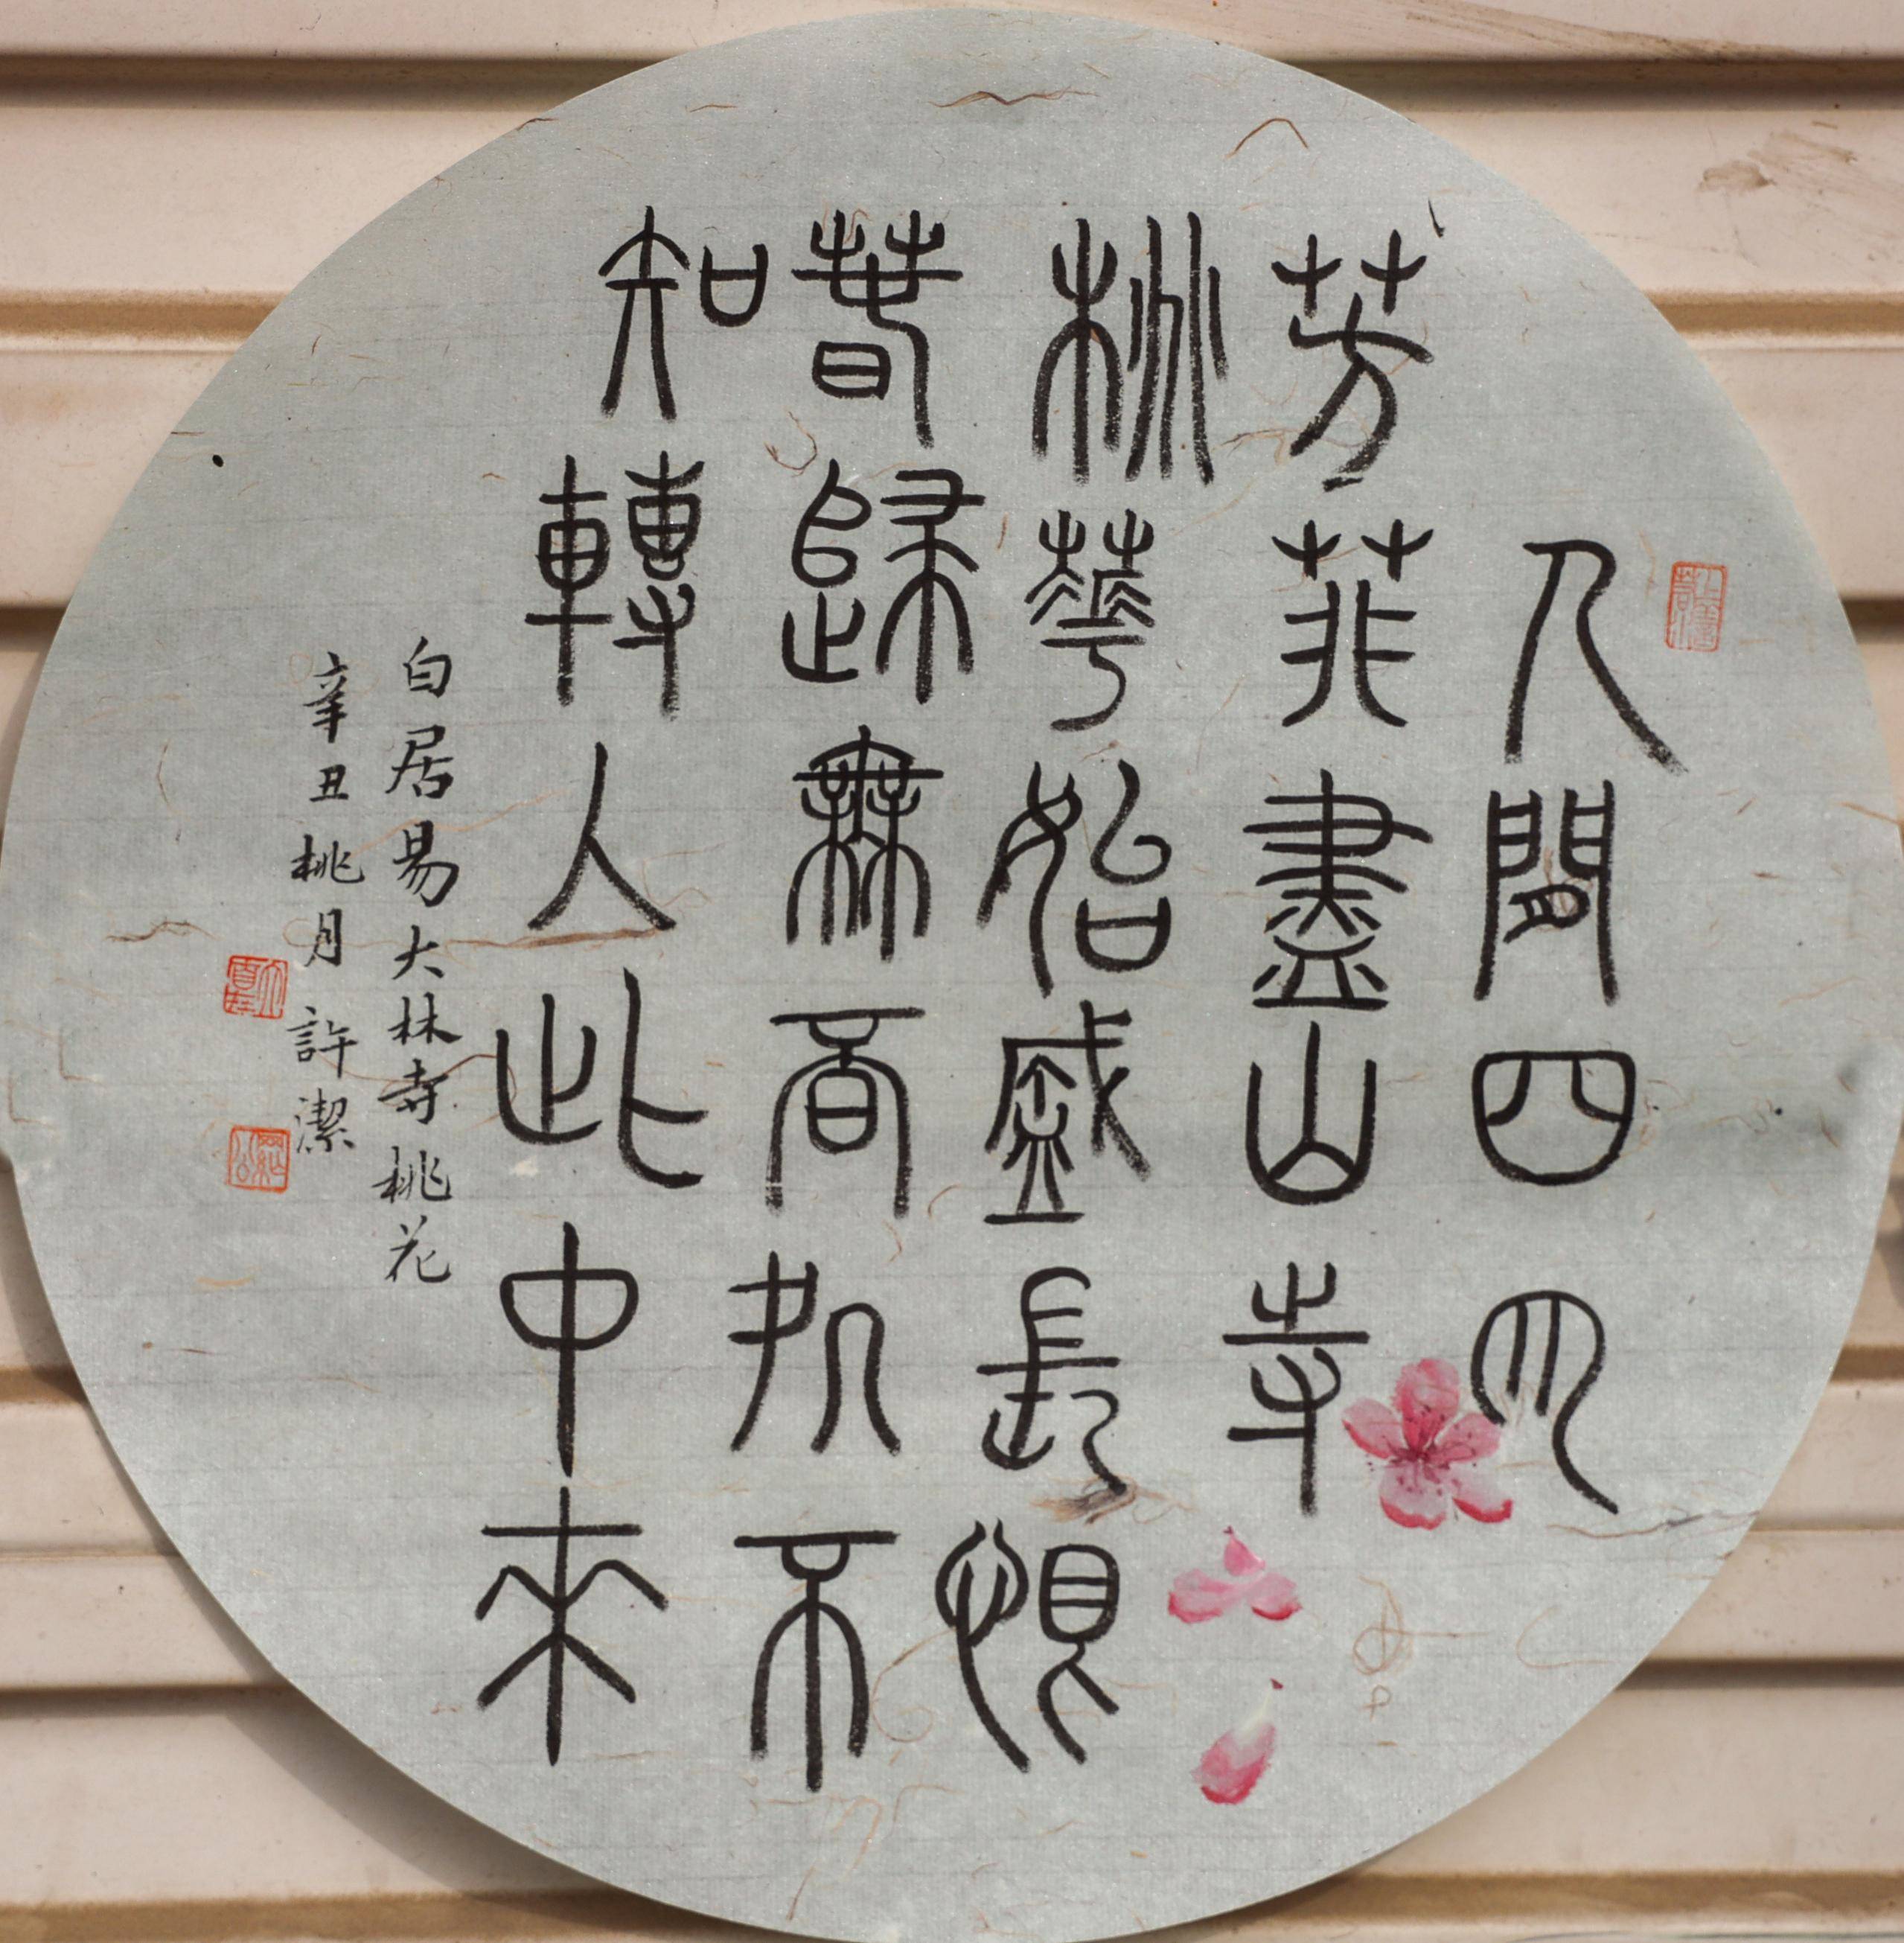 人間四月
芳菲盡山寺
桃華始盛長恨
春歸無覓處不
知轉入此中來
白居易大林寺桃花
辛丑桃月許潔